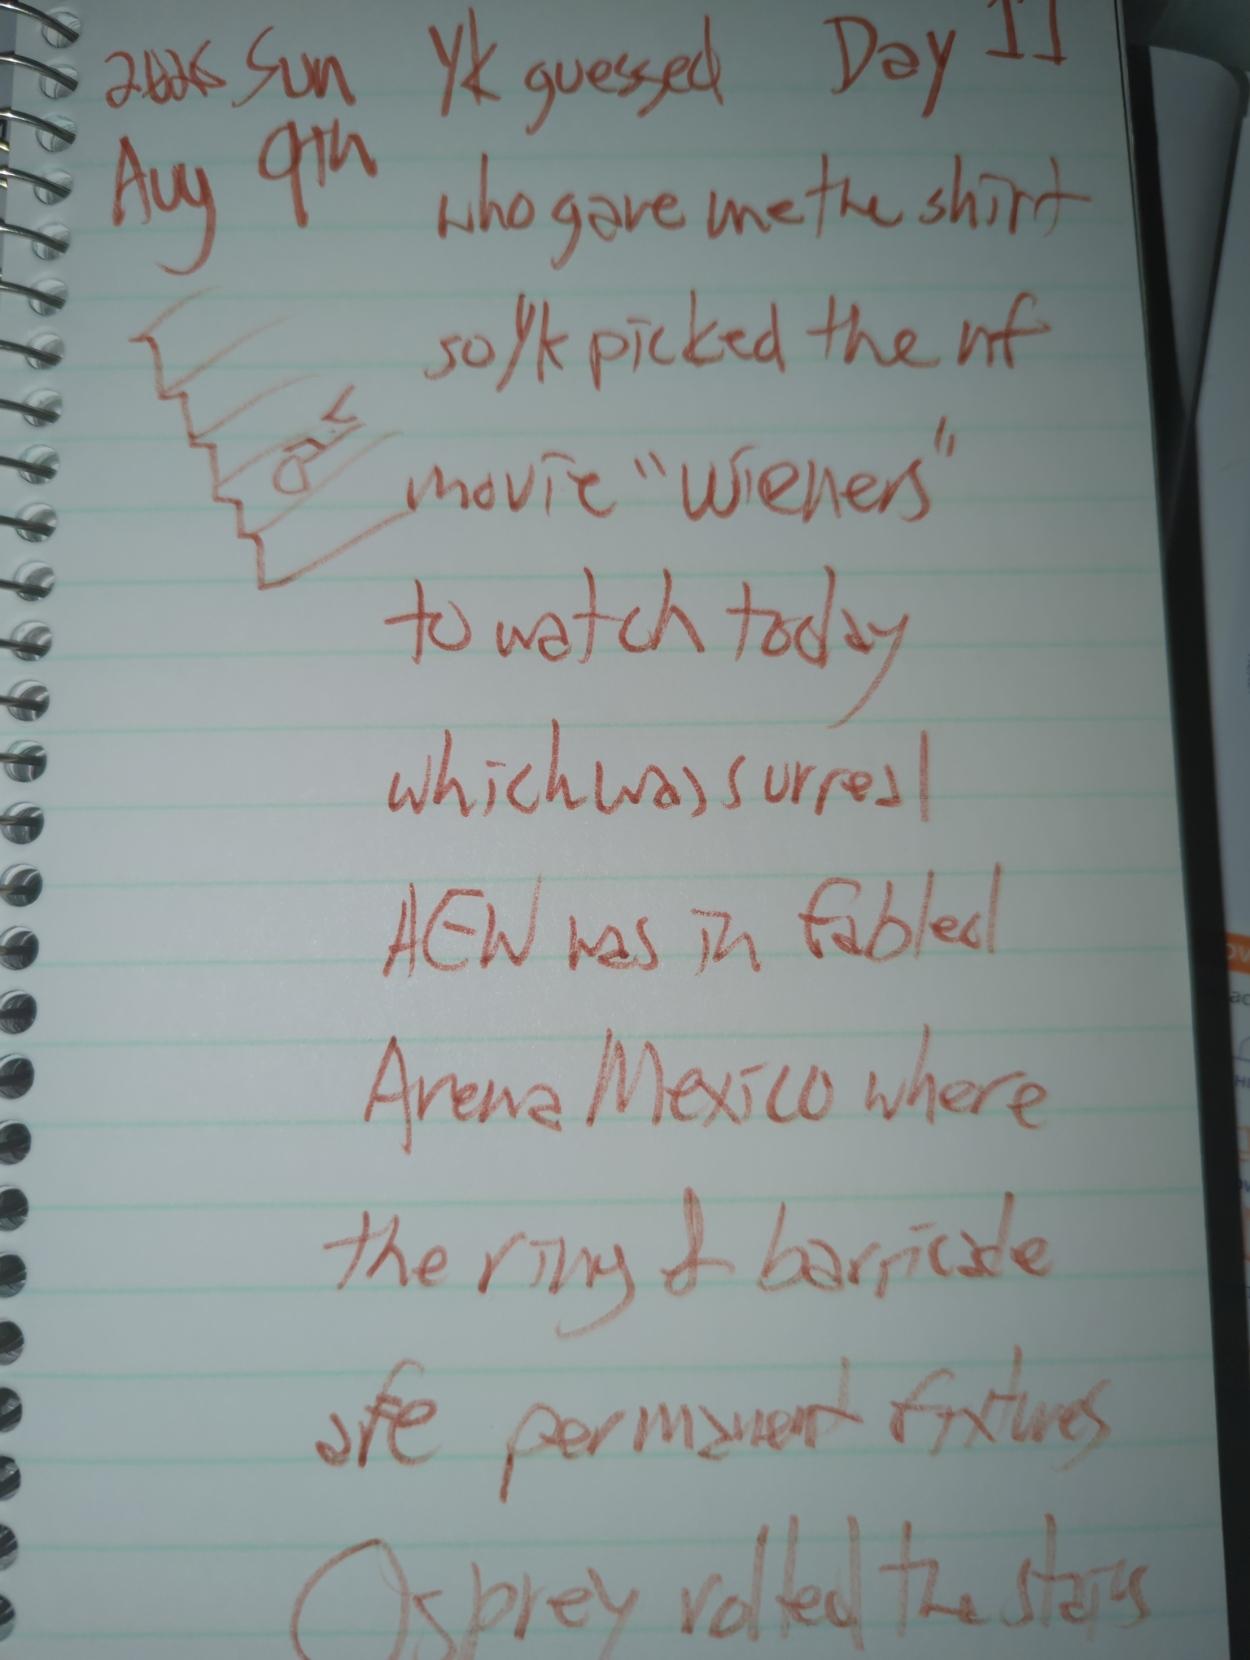 2026 Sun Yk guessed Day 11
Aug 9th who gave me the shirt
so Yk picked the nf
movie "Wieners"
to watch today
which was surreal
AEW was in fabled
Arena Mexico where
the ring & barricade
are permanent fixtures
Osprey rolled the stairs